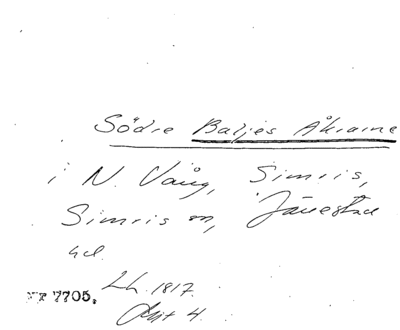 Södre Baljes Åkrarne
i N. Vång, Simris,
Simris sn, Järrestad
hd.
Lh. 1817.
7705. Akt 4.